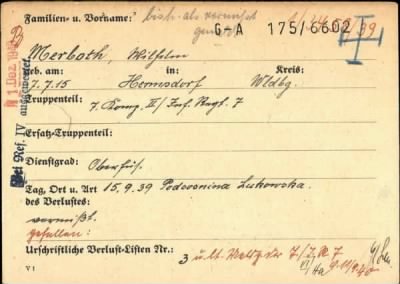 Familien- u. Vorname: bish. als vermißt
gemeldet G-A 175/6602
Merboth, Wilhelm
geb. am: in: Kreis:
7.7.15 Hermsdorf Wldbg.
Truppenteil:
7. Komp. II/Inf. Regt. 7
Ersatz-Truppenteil:
Dienstgrad: Oberfüs.
Tag, Ort u. Art 15.9.39 Podoronina Lukowska
des Verlustes:
vermißt.
gefallen:
Urschriftliche Verlust-Listen Nr.: 3 u. lt. Meldg. der 7/J.R. 7
V 1
Bei Ref. IV ausgewertet
1. Dez. 19